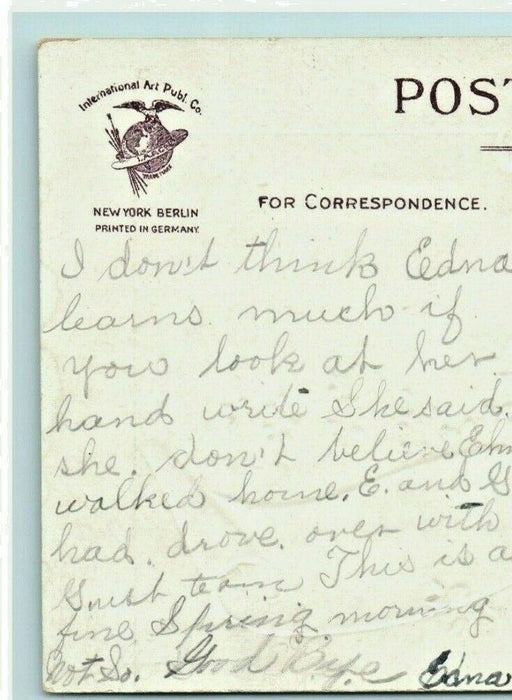 International Art Publ. Co.
NEW YORK BERLIN
PRINTED IN GERMANY.
POST
FOR CORRESPONDENCE.
I don't think Edna
learns much if
you look at her
hand write She said.
she. don't believe
walked home. E. and G
had. drove. over with
team This is a
fine Spring morning
Not So. Good Bye
Edna